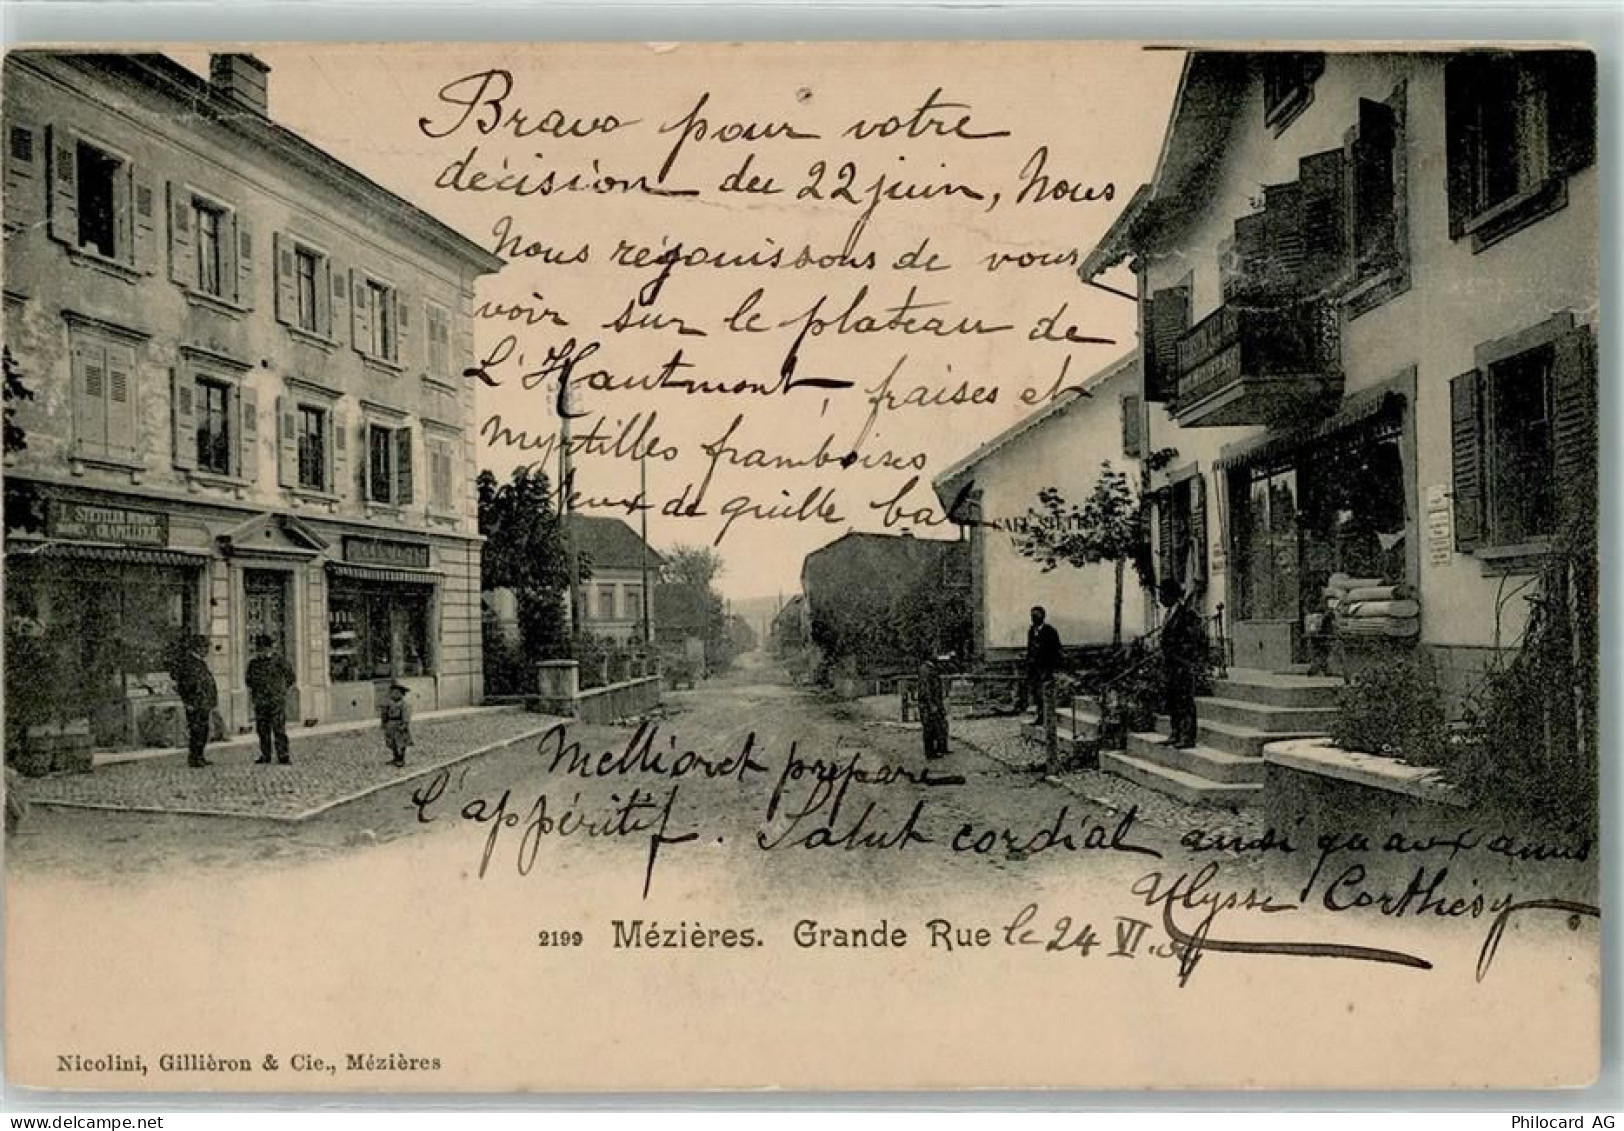 Bravo pour votre
décision du 22 juin, Nous
Nous réjouissons de vous
voir sur le plateau de
L'Hautmont, fraises et
Myrtilles framboises
Jeux de quille bal
CAFÉ
Mellioret prépare
l'appéritif. Salut cordial ainsi qu'aux amis
Ulysse Corthésy
2199 Mézières. Grande Rue le 24 VI.
Nicolini, Gillièron & Cie., Mézières
Philocard AG